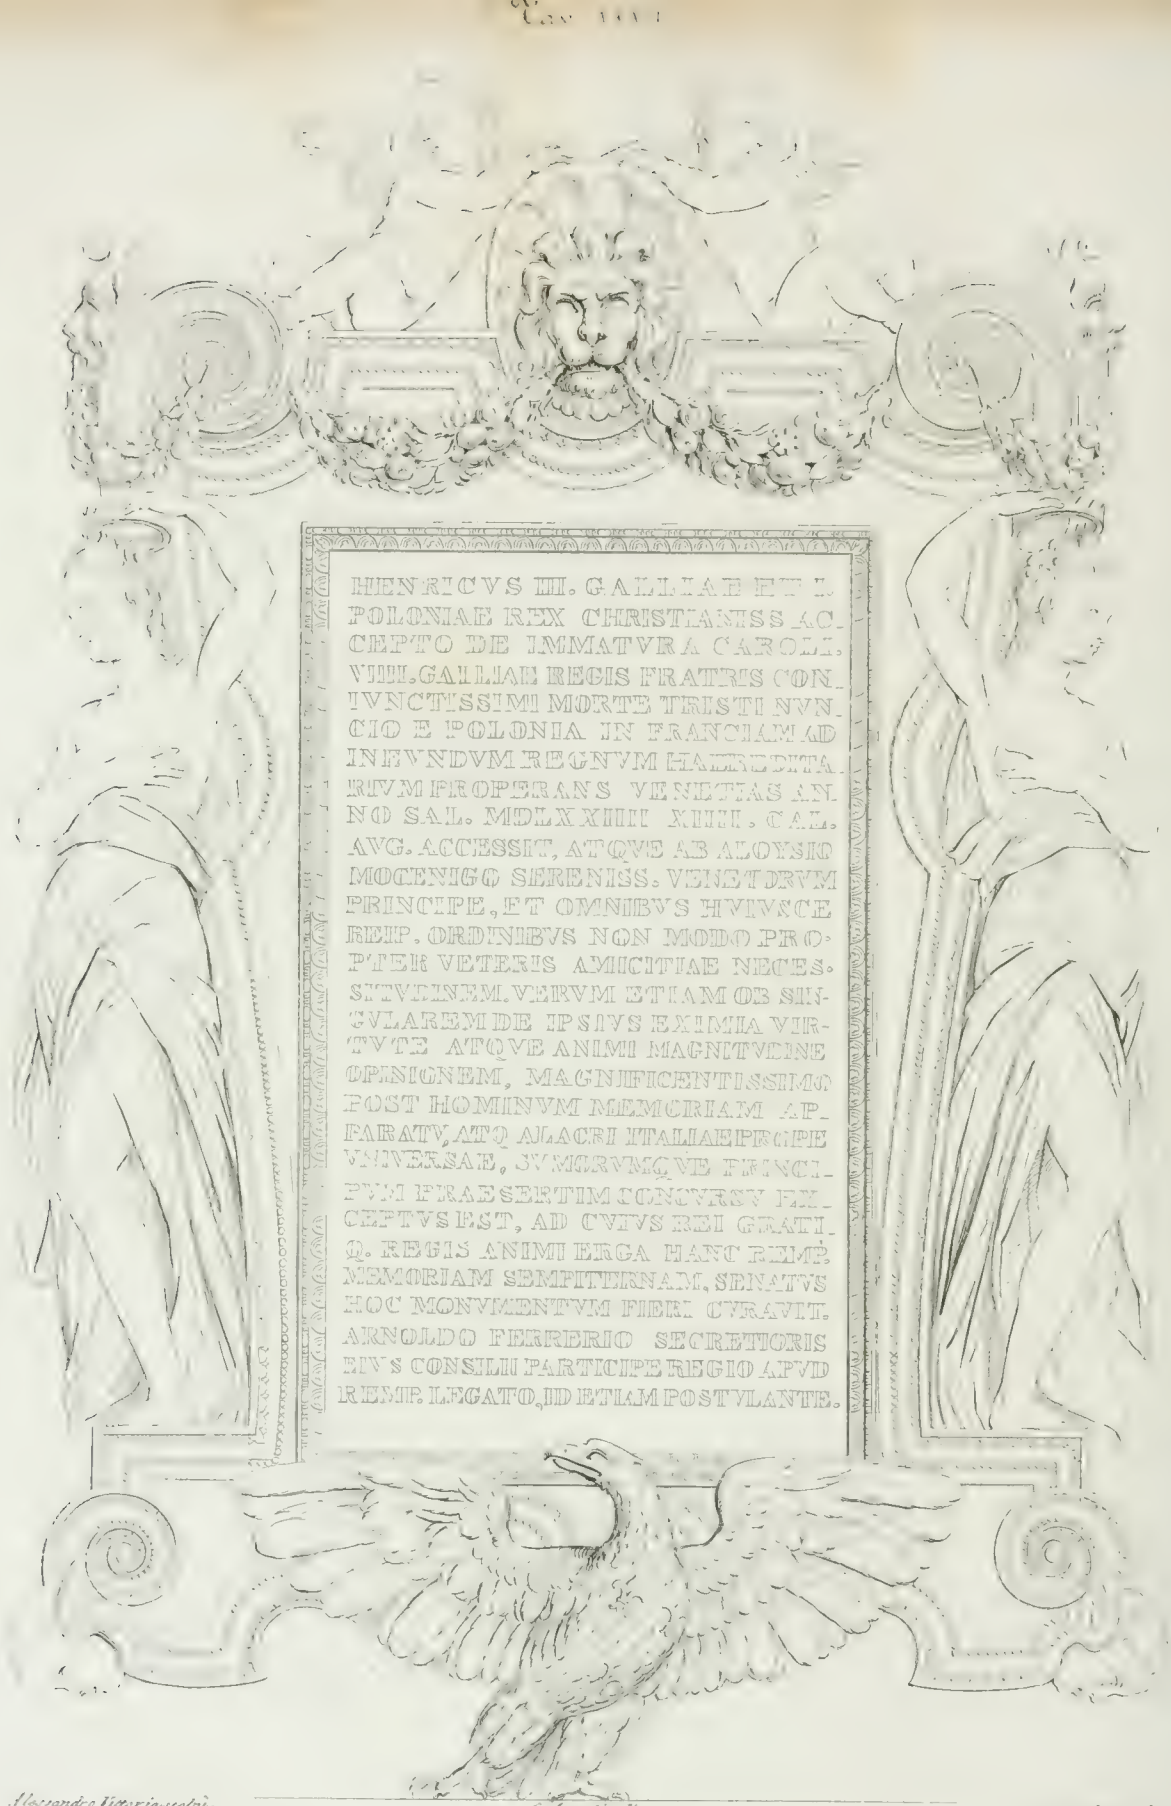 HENRICVS III. GALLIAE ET I.
POLONIAE REX CHRISTIANISS AC-
CEPTO DE IMMATVRA CAROLI.
VIIII. GALLIAE REGIS FRATRIS CON-
IVNCTISSIMI MORTE TRISTI NVN-
CIO E POLONIA IN FRANCIAM AD
INEVNDVM REGNVM HAEREDITA-
RIVM PROPERANS VENETIAS AN-
NO SAL. MDLXXIIII XIIII. CAL.
AVG. ACCESSIT, ATQVE AB ALOYSIO
MOCENIGO SERENISS. VENETORVM
PRINCIPE, ET OMNIBVS HVIVSCE
REIP. ORDINIBVS NON MODO PRO-
PTER VETERIS AMICITIAE NECES-
SITVDINEM. VERVM ETIAM OB SIN-
GVLAREM DE IPSIVS EXIMIA VIR-
TVTE ATQVE ANIMI MAGNITVDINE
OPINIONEM, MAGNIFICENTISSIMO
POST HOMINVM MEMORIAM AP-
PARATV, ATQ ALACRI ITALIAE PROPE
VNIVERSAE, SVMORVMQVE PRINCI-
PVM PRAESERTIM CONCVRSV EX-
CEPTVS EST, AD CVIVS REI GRATI-
Q. REGIS ANIMI ERGA HANC REMP.
MEMORIAM SEMPITERNAM, SENATVS
HOC MONVMENTVM FIERI CVRAVIT.
ARNOLDO FERRERIO SECRETIORIS
EIVS CONSILII PARTICIPE REGIO APVD
REMP. LEGATO, ID ETIAM POSTVLANTE.
Alessandro Vittoria